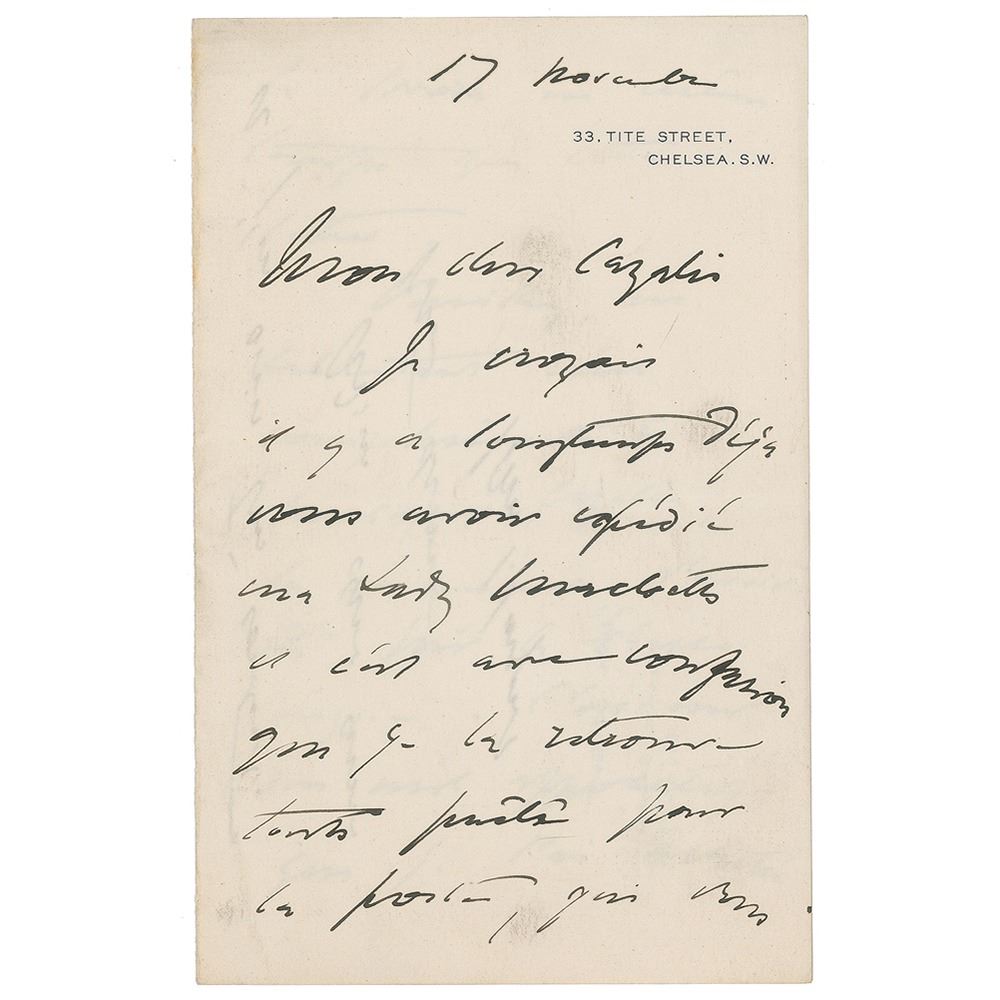 17 November
33, TITE STREET,
CHELSEA. S.W.
Mon cher Cazalis
Je croyais
il y a longtemps déjà
vous avoir expédié
ma Lady Macbeth
et c'est avec confusion
que je la retrouve
toute prête pour
la poste, qui